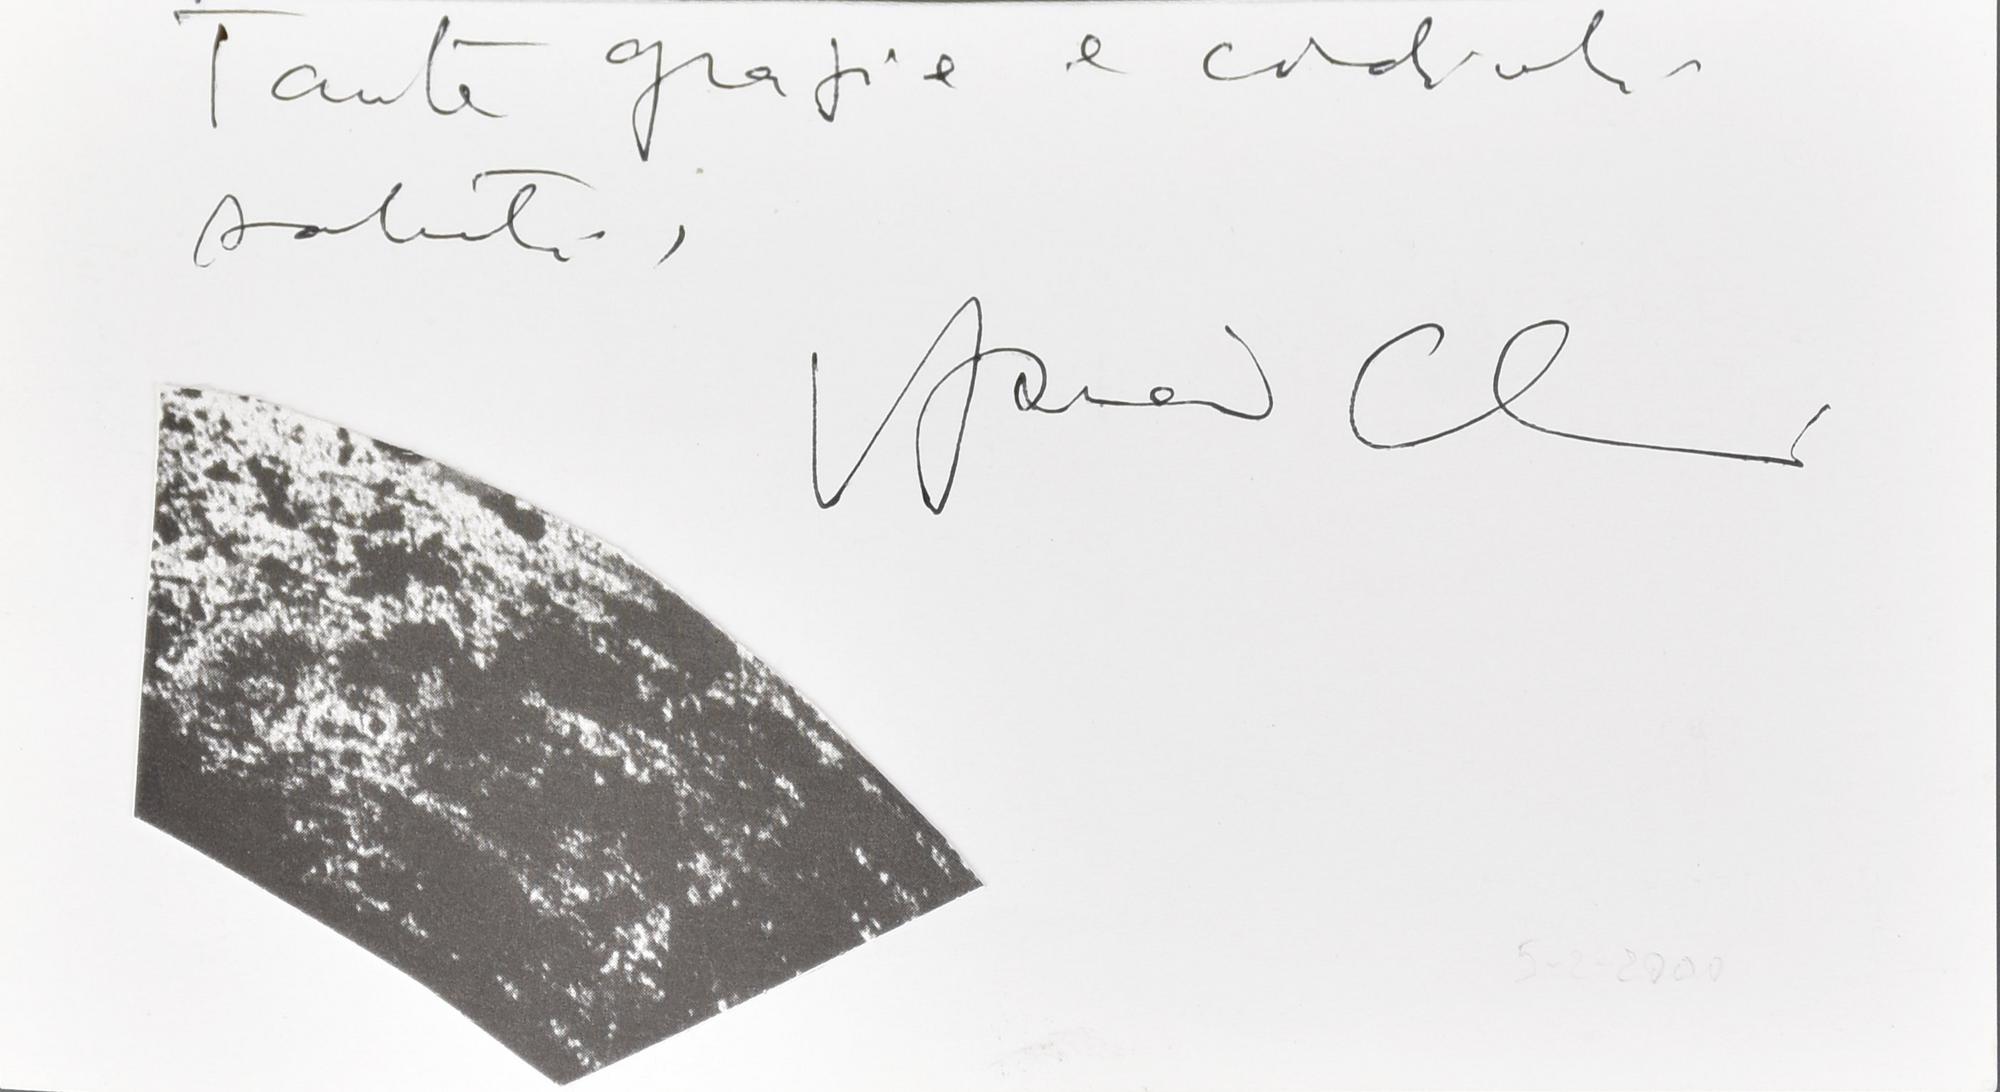 Tante grazie e cordiali
saluti,
5-2-2000